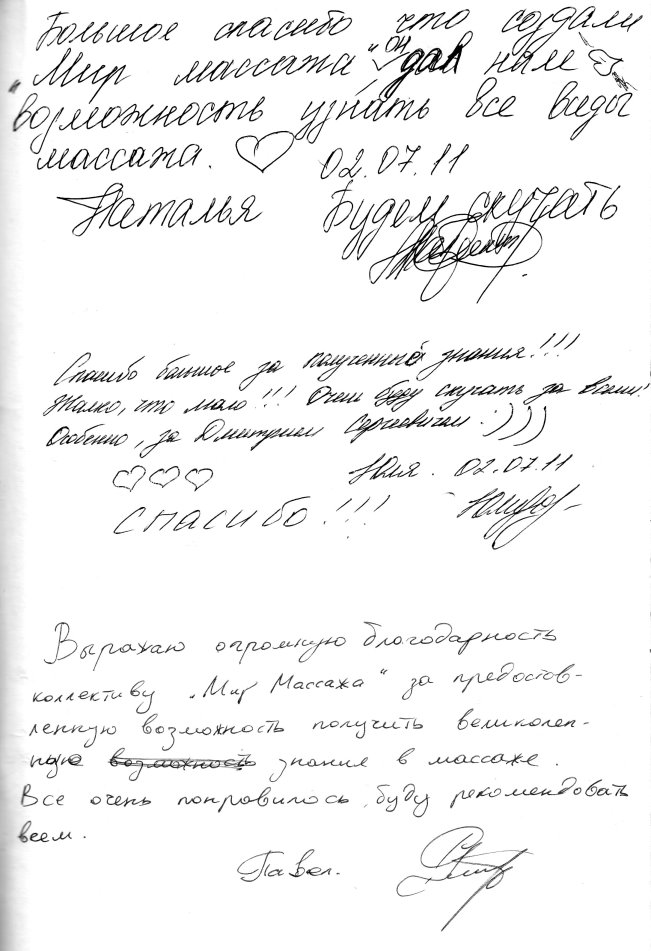 Большое спасибо что создали
"Мир массажа", он дал нам
возможность узнать все виды
массажа. 02.07.11
Наталья Будем скучать
Спасибо большое за полученные знания!!!
Жалко, что мало!!! Очень буду скучать за всеми!
Особенно, за Дмитрием Сергеевичем :)))
Юля. 02.07.11
СПАСИБО!!!
Выражаю огромную благодарность
коллективу „Мир Массажа“ за предостав-
ленную возможность получить великолеп-
ную возможность знания в массаже.
Все очень понравилось, буду рекомендовать
всем.
Павел.